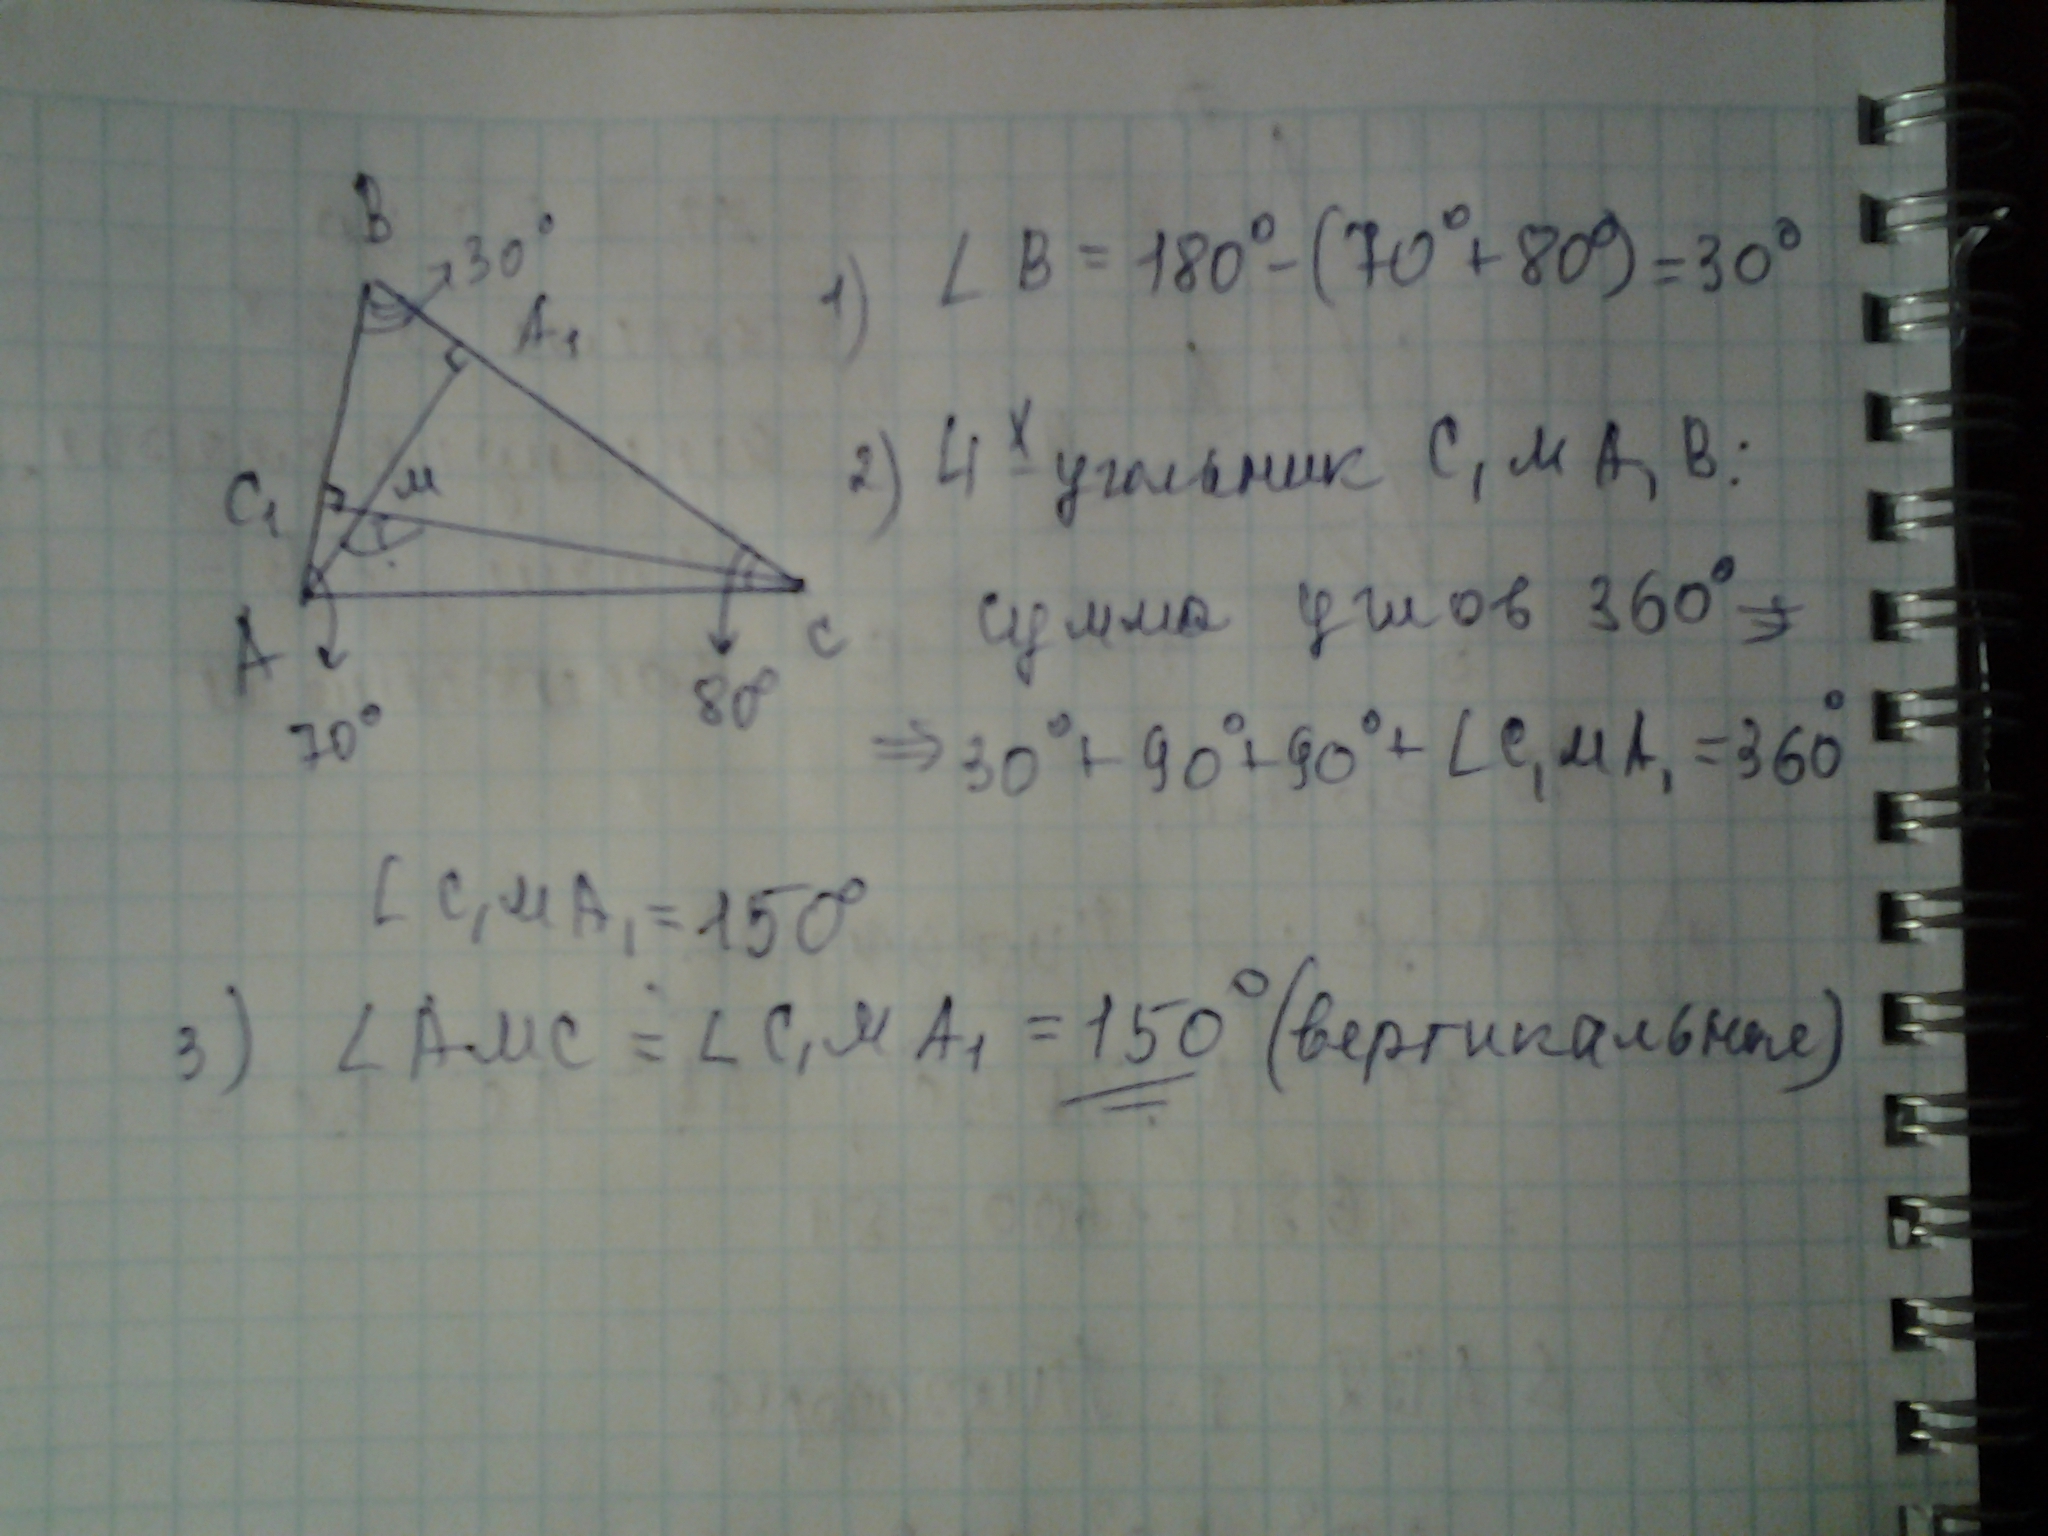 B
30°
A₁
C₁
М
A
70°
80°
C
1) ∠B = 180° - (70° + 80°) = 30°
2) 4ˣ угольник C₁МA₁B:
сумма углов 360° ⇒
⇒ 30° + 90° + 90° + ∠C₁МA₁ = 360°
∠C₁МA₁ = 150°
3) ∠AМC = ∠C₁МA₁ = 150° (вертикальные)